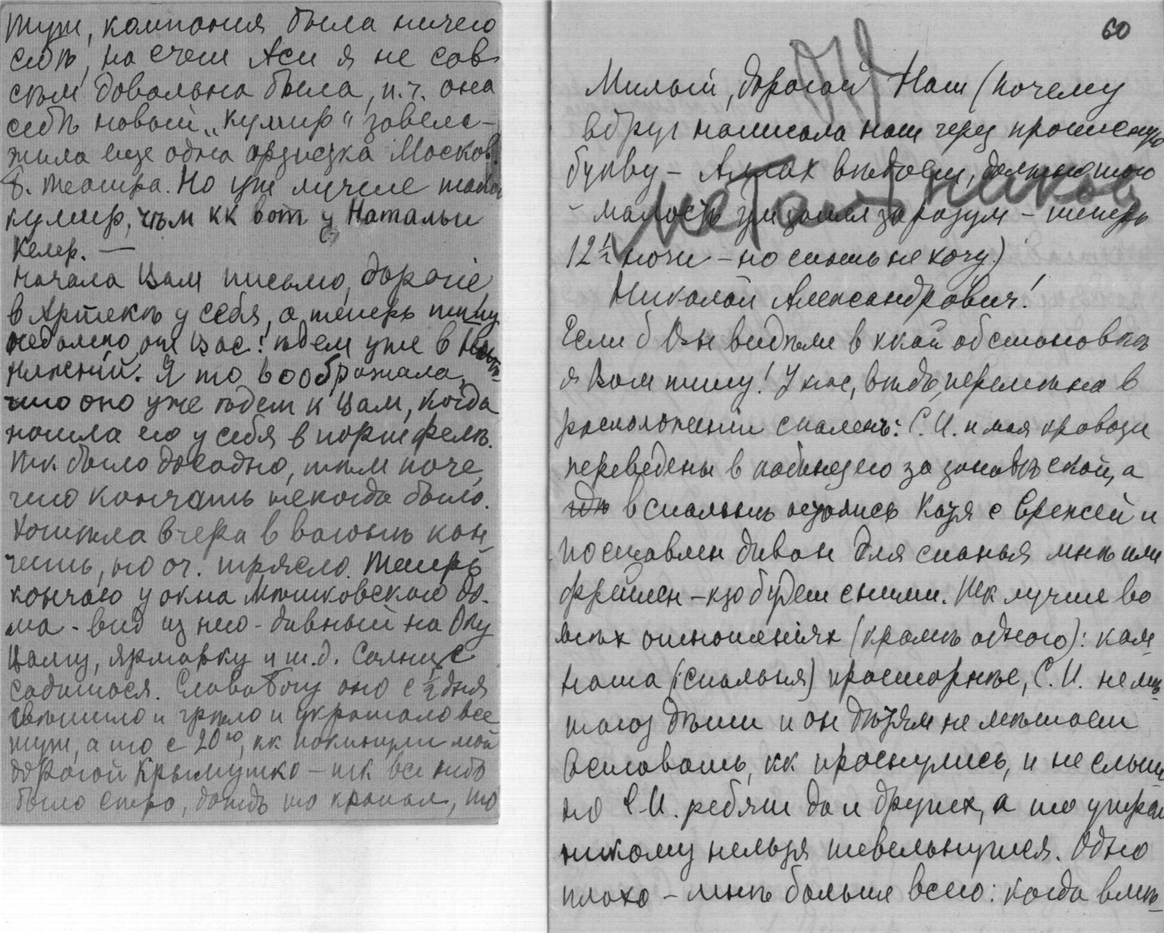 тут, компания была ничего
себѣ, на счет Аси я не сов-
сѣм довольна была, п.ч. она
себѣ новый „кумир“ завела –
жила еще одна артистка Москов.
Х. театра. Но уж лучше такой
кумир, чѣм кк вот у Натальи
Келер. —
Начала Вам письмо, дорогіе
в Артекѣ у себя, а теперь пишу
недалеко от Вас! ѣдем уже в
Я то воображала,
что оно уже ѣдет к Вам, когда
нашла его у себя в портфелѣ.
Тк было досадно, тѣм паче,
что кончать некогда было.
Хотѣла вчера в вагонѣ кон-
чить, но оч. трясло. Теперь
кончаю у окна Мѣшковского до-
ма – вид из него – дивный на Оку
Волгу, ярмарку и т.д. Солнце
садится. Слава Богу оно с ½ дня
свѣтило и грѣло и украшало все
тут, а то с 20го, кк покинули мой
дорогой Крымушко – тк все небо
было сѣро, дождь то крапал, то
60
Милый, дорогой Наш (почему
вдруг написала наш через прописную
букву –
малость ум зашел за разум – теперь
12½ ночи – но спать не хочу.)
Николай Александрович!
Если б Вы видѣли в ккой обстановкѣ
я Вам пишу! У нас, вѣдь, перемѣна в
расположении спален: С.И. и моя кровати
переведены в кабинет его за занавѣской, а
в спальнѣ остались Катя с Еленой и
поставлен диван для спанья мнѣ или
фрейлен – кто будет с ними. Тк лучше во
всѣх отношеніях (кромѣ одного): ком-
ната (спальня) просторнѣе, С.И. не мѣ-
шают дѣти и он дѣтям не мѣшает
вставать, кк проснулись, и не слыш-
но С.И. ребят да и других, а то утром
никому нельзя шевельнуться. Одно
плохо – мнѣ больше всего: когда вмѣ-